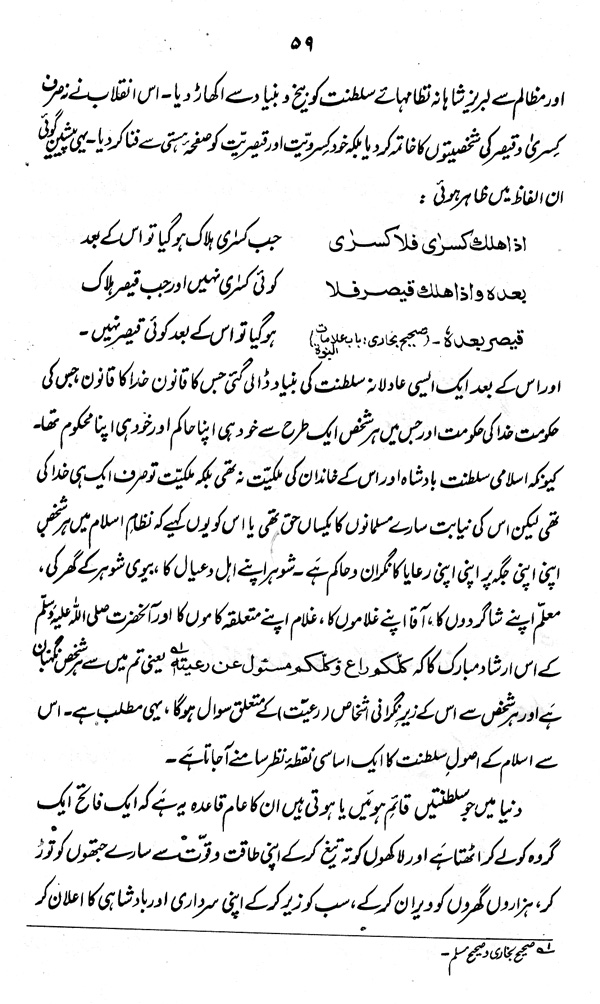 ۵۹
اور مظالم سے لبریز شاہانہ نظامہائے سلطنت کو بیخ و بنیاد سے اکھاڑ دیا۔ اس انقلاب نے نہ صرف
کسریٰ و قیصر کی شخصیتوں کا خاتمہ کر دیا بلکہ خود کسرویّت اور قیصریّت کو صفحۂ ہستی سے فنا کر دیا۔ یہی پیشین گوئی
ان الفاظ میں ظاہر ہوئی :
اذا هلك كسرٰى فلا كسرٰى جب کسریٰ ہلاک ہو گیا تو اس کے بعد
بعده واذا هلك قيصر فلا کوئی کسریٰ نہیں اور جب قیصر ہلاک
قيصر بعدهٗ۔ (صحیح بخاری: باب علامات النبوۃ) ہو گیا تو اس کے بعد کوئی قیصر نہیں۔
اور اس کے بعد ایک ایسی عادلانہ سلطنت کی بنیاد ڈالی گئی جس کا قانون خدا کا قانون، جس کی
حکومت خدا کی حکومت اور جس میں ہر شخص ایک طرح سے خود ہی اپنا حاکم اور خود ہی اپنا محکوم تھا۔
کیونکہ اسلامی سلطنت بادشاہ اور اس کے خاندان کی ملکیّت نہ تھی بلکہ ملکیّت تو صرف ایک ہی خدا کی
تھی لیکن اس کی نیابت سارے مسلمانوں کا یکساں حق تھی یا اس کو یوں کہیے کہ نظامِ اسلام میں ہر شخص
اپنی اپنی جگہ پر اپنی اپنی رعایا کا نگران و حاکم ہے۔ شوہر اپنے اہل و عیال کا، بیوی شوہر کے گھر کی،
معلّم اپنے شاگردوں کا، آقا اپنے غلاموں کا، غلام اپنے متعلقہ کاموں کا اور آنحضرت صلی اللہ علیہ وسلّم
کے اس ارشاد مبارک کا کہ كلكم راع وكلكم مسئول عن رعيته ؎۱ یعنی تم میں سے ہر شخص نگہبان
ہے اور ہر شخص سے اس کے زیرِ نگرانی اشخاص (رعیّت) کے متعلق سوال ہو گا، یہی مطلب ہے۔ اس
سے اسلام کے اصولِ سلطنت کا ایک اساسی نقطۂ نظر سامنے آجاتا ہے۔
دنیا میں جو سلطنتیں قائم ہوئیں یا ہوتی ہیں ان کا عام قاعدہ یہ ہے کہ ایک فاتح ایک
گروہ کو لے کر اٹھتا ہے اور لاکھوں کو تہ تیغ کر کے اپنی طاقت و قوّت سے سارے جتھوں کو توڑ
کر، ہزاروں گھروں کو ویران کر کے، سب کو زیر کر کے اپنی سرداری اور بادشاہی کا اعلان کر
؎۱ صحیح بخاری و صحیح مسلم۔